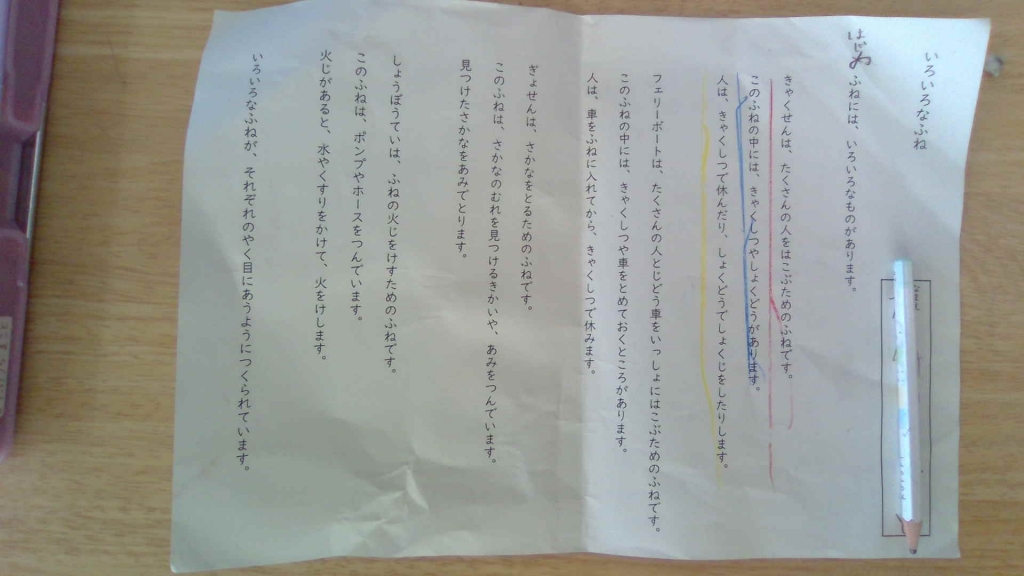 いろいろなふね
はじめ
ふねには、いろいろなものがあります。
きゃくせんは、たくさんの人をはこぶためのふねです。
このふねの中には、きゃくしつやしょくどうがあります。
人は、きゃくしつで休んだり、しょくどうでしょくじをしたりします。
フェリーボートは、たくさんの人とじどう車をいっしょにはこぶためのふねです。
このふねの中には、きゃくしつや車をとめておくところがあります。
人は、車をふねに入れてから、きゃくしつで休みます。
ぎょせんは、さかなをとるためのふねです。
このふねは、さかなのむれを見つけるきかいや、あみをつんでいます。
見つけたさかなをあみでとります。
しょうぼうていは、ふねの火じをけすためのふねです。
このふねは、ポンプやホースをつんでいます。
火じがあると、水やくすりをかけて、火をけします。
いろいろなふねが、それぞれのやく目にあうようにつくられています。